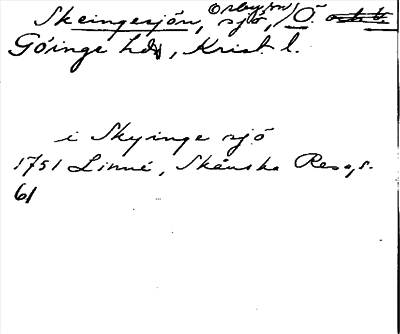 Skeingesjön, sjö, Ö.
Göinge hd, Krist. l.
i Skyinge sjö
1751 Linné, Skånska Resa, s.
61